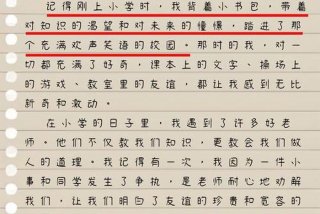 记得刚上小学时，我背着小书包，带着
对知识的渴望和对未来的憧憬，踏进了那
个充满欢声笑语的校园。那时的我，对一
切都充满了好奇，课本上的文字、操场上
的游戏、教室里的友谊，都让我感到无比
新奇和激动。
在小学的日子里，我遇到了许多好老
师。他们不仅教我们知识，更教会我们做
人的道理。我记得有一次，我因为一件小
事和同学发生了争执，是老师耐心地劝解
我们，让我们明白了友谊的珍贵和宽容的